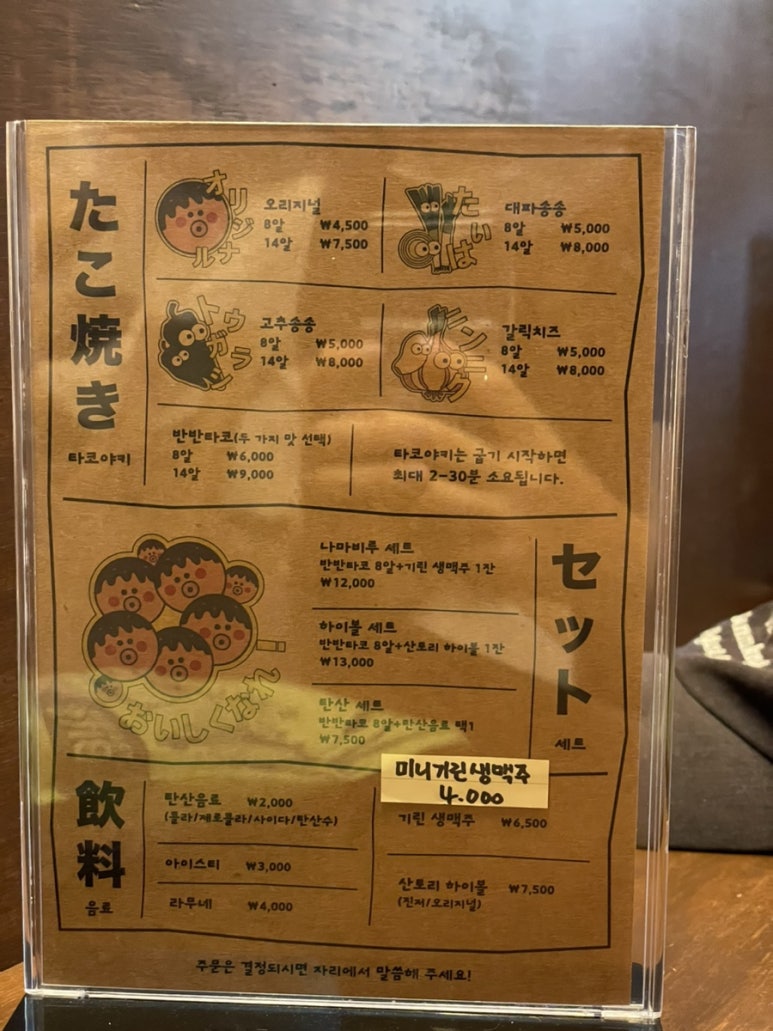 たこ焼き
타코야키
オリジナル
오리지널
8알 ₩4,500
14알 ₩7,500
たいは
대파송송
8알 ₩5,000
14알 ₩8,000
トウガラシ
고추송송
8알 ₩5,000
14알 ₩8,000
ニンニク
갈릭치즈
8알 ₩5,000
14알 ₩8,000
반반타코(두 가지 맛 선택)
8알 ₩6,000
14알 ₩9,000
타코야키는 굽기 시작하면
최대 2-30분 소요됩니다.
おいしくなれ
セット
세트
나마비루 세트
반반타코 8알+기린 생맥주 1잔
₩12,000
하이볼 세트
반반타코 8알+산토리 하이볼 1잔
₩13,000
탄산 세트
반반타코 8알+탄산음료 택1
₩7,500
飲料
음료
탄산음료 ₩2,000
(콜라/제로콜라/사이다/탄산수)
아이스티 ₩3,000
라무네 ₩4,000
미니기린생맥주
4.000
기린 생맥주 ₩6,500
산토리 하이볼 ₩7,500
(진저/오리지널)
주문은 결정되시면 자리에서 말씀해 주세요!